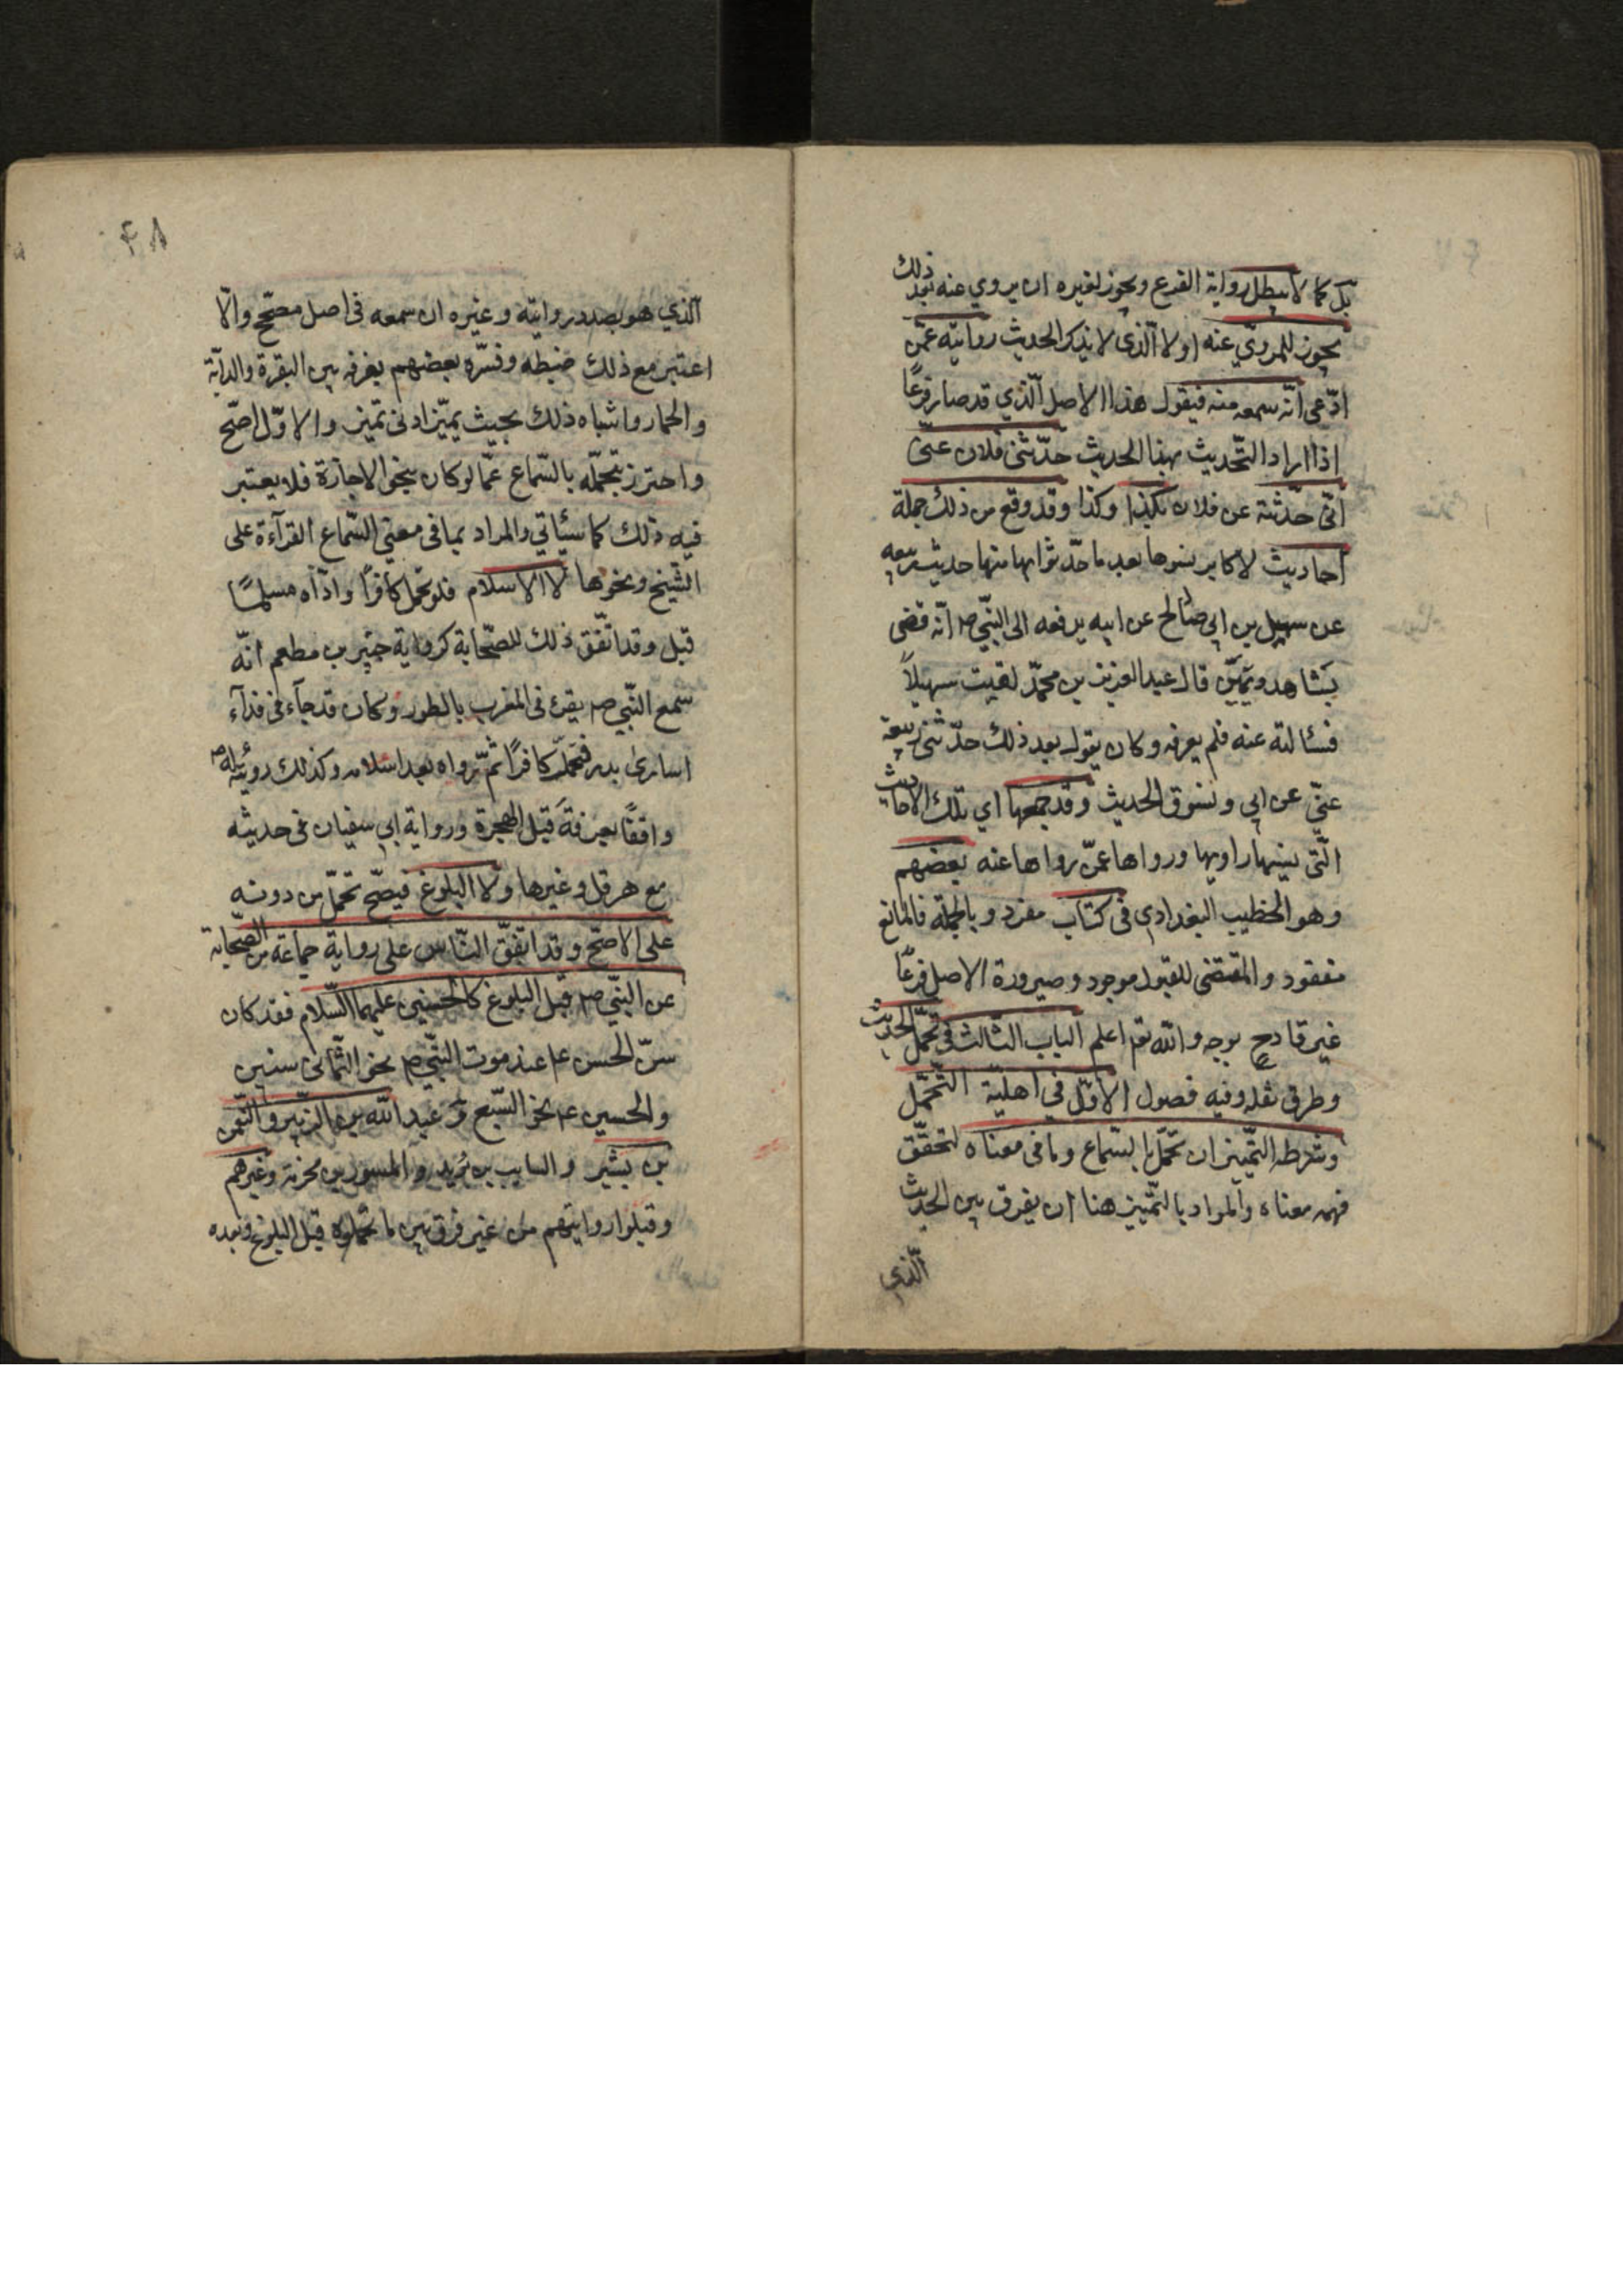 بل كما لا يبطل رواية الفرع ويجوز لغيره ان يروي عنه بعد ذلك
يجوز للمروي عنه اولا الذي لا يذكر الحديث روايته عمن
ادّعى انّه سمعه منه فيقول هذا الاصل الّذي قد صار فرعًا
اذا اراد التّحديث بهذا الحديث حدّثني فلان عنّي
انّي حدّثته عن فلان بكذا وكذا وقد وقع من ذلك جملة
احاديث لاكابر نسوها بعد ما حدّثوا بها منها حديث ربيعه
عن سهيل بن ابي صالح عن ابيه يرفعه الى النّبيّ ص انّه قضى
بشاهد ويمين قال عبد العزيز بن محمّد لقيت سهيلاً
فسئالته عنه فلم يعرفه وكان يقول بعد ذلك حدّثني ربيعة
عنّي عن ابي ونسوق الحديث وقد جمعها اي تلك الاحاديث
الّتي نسيها راويها ورواها عمّن رواها عنه بعضهم
وهو الخطيب البغدادي في كتاب مفرد وبالجملة فالمانع
مفقود والمقتضى للقبول موجود وصيرورة الاصل فرعًا
غير قادحٍ بوجه والله تعم اعلم الباب الثّالث في تحمّل الحديث
وطرق نقله وفيه فصول الاوّل في اهليّة التّحمّل
وشرطه التّمييز ان تحمّل بالسّماع وما في معناه لتحقّق
فهمه معناه والمراد بالتّمييز هنا ان يفرق بين الحديث
الّذي
۴۸
الّذي هو بصدد روايته وغيره ان سمعه في اصل مصحّح والّا
اعتبر مع ذلك ضبطه وفسّره بعضهم يفرق بين البقرة والدابّة
والحمار واشباه ذلك بحيث يميّز ادنى تميز والاوّل اصّح
واحترز بتحمّله بالسّماع عمّا لو كان بنحو الاجازة فلا يعتبر
فيه ذلك كما سيئاتي والمراد بما في معنى السّماع القرآءة على
الشّيخ ونحوها لا الاسلام فلو تحمل كافرًا وادّاه مسلمًا
قبل وقد اتّفق ذلك للصّحابة كرواية جبير بن مطعم انّه
سمع النّبي ص يقرئ في المغرب بالطور وكان قد جآء في فدآء
اسارى بدر فتحمّله كافرًا ثمّ رواه بعد اسلامه وكذلك رويته له ص
واقفًا بعرفة قبل الهجرة ورواية ابي سفيان في حديثه
مع هرقل وغيرها ولا البلوغ فيصّح تحمّل من دونه
على الاصّح وقد اتّفق النّاس على رواية جماعة من الصّحابة
عن النبيّ ص قبل البلوغ كالحسنين عليهما السّلام فقد كان
سنّ الحسن ع عند موت النّبيّ ص نحو الثّماني سنين
والحسين ع نحو السّبع و عبد الله بن الزّبير والنّعمن
بن بشير والسايب بن يزيد والمسور بن مخرمة وغيرهم
وقبلوا روايتهم من غير فرق بين ما تحملوه قبل البلوغ وبعده